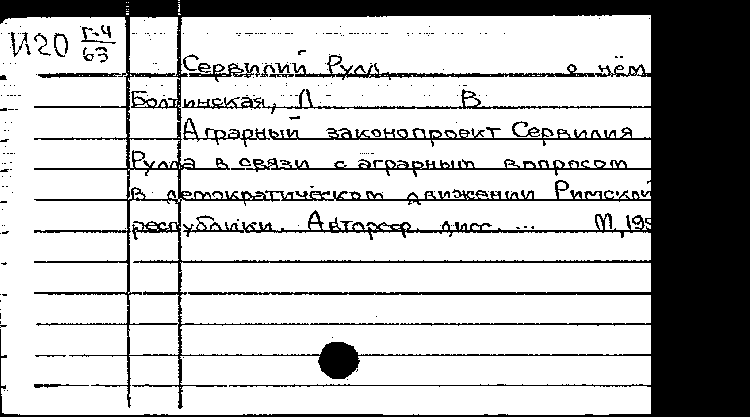 И20 Г-4
63
Сервилий Рулл, о нём
Болтинская, Л. В
Аграрный законопроект Сервилия
Рулла в связи с аграрным вопросом
в демократическом движении Римской
республики. Автореф. дисс. ... М, 195